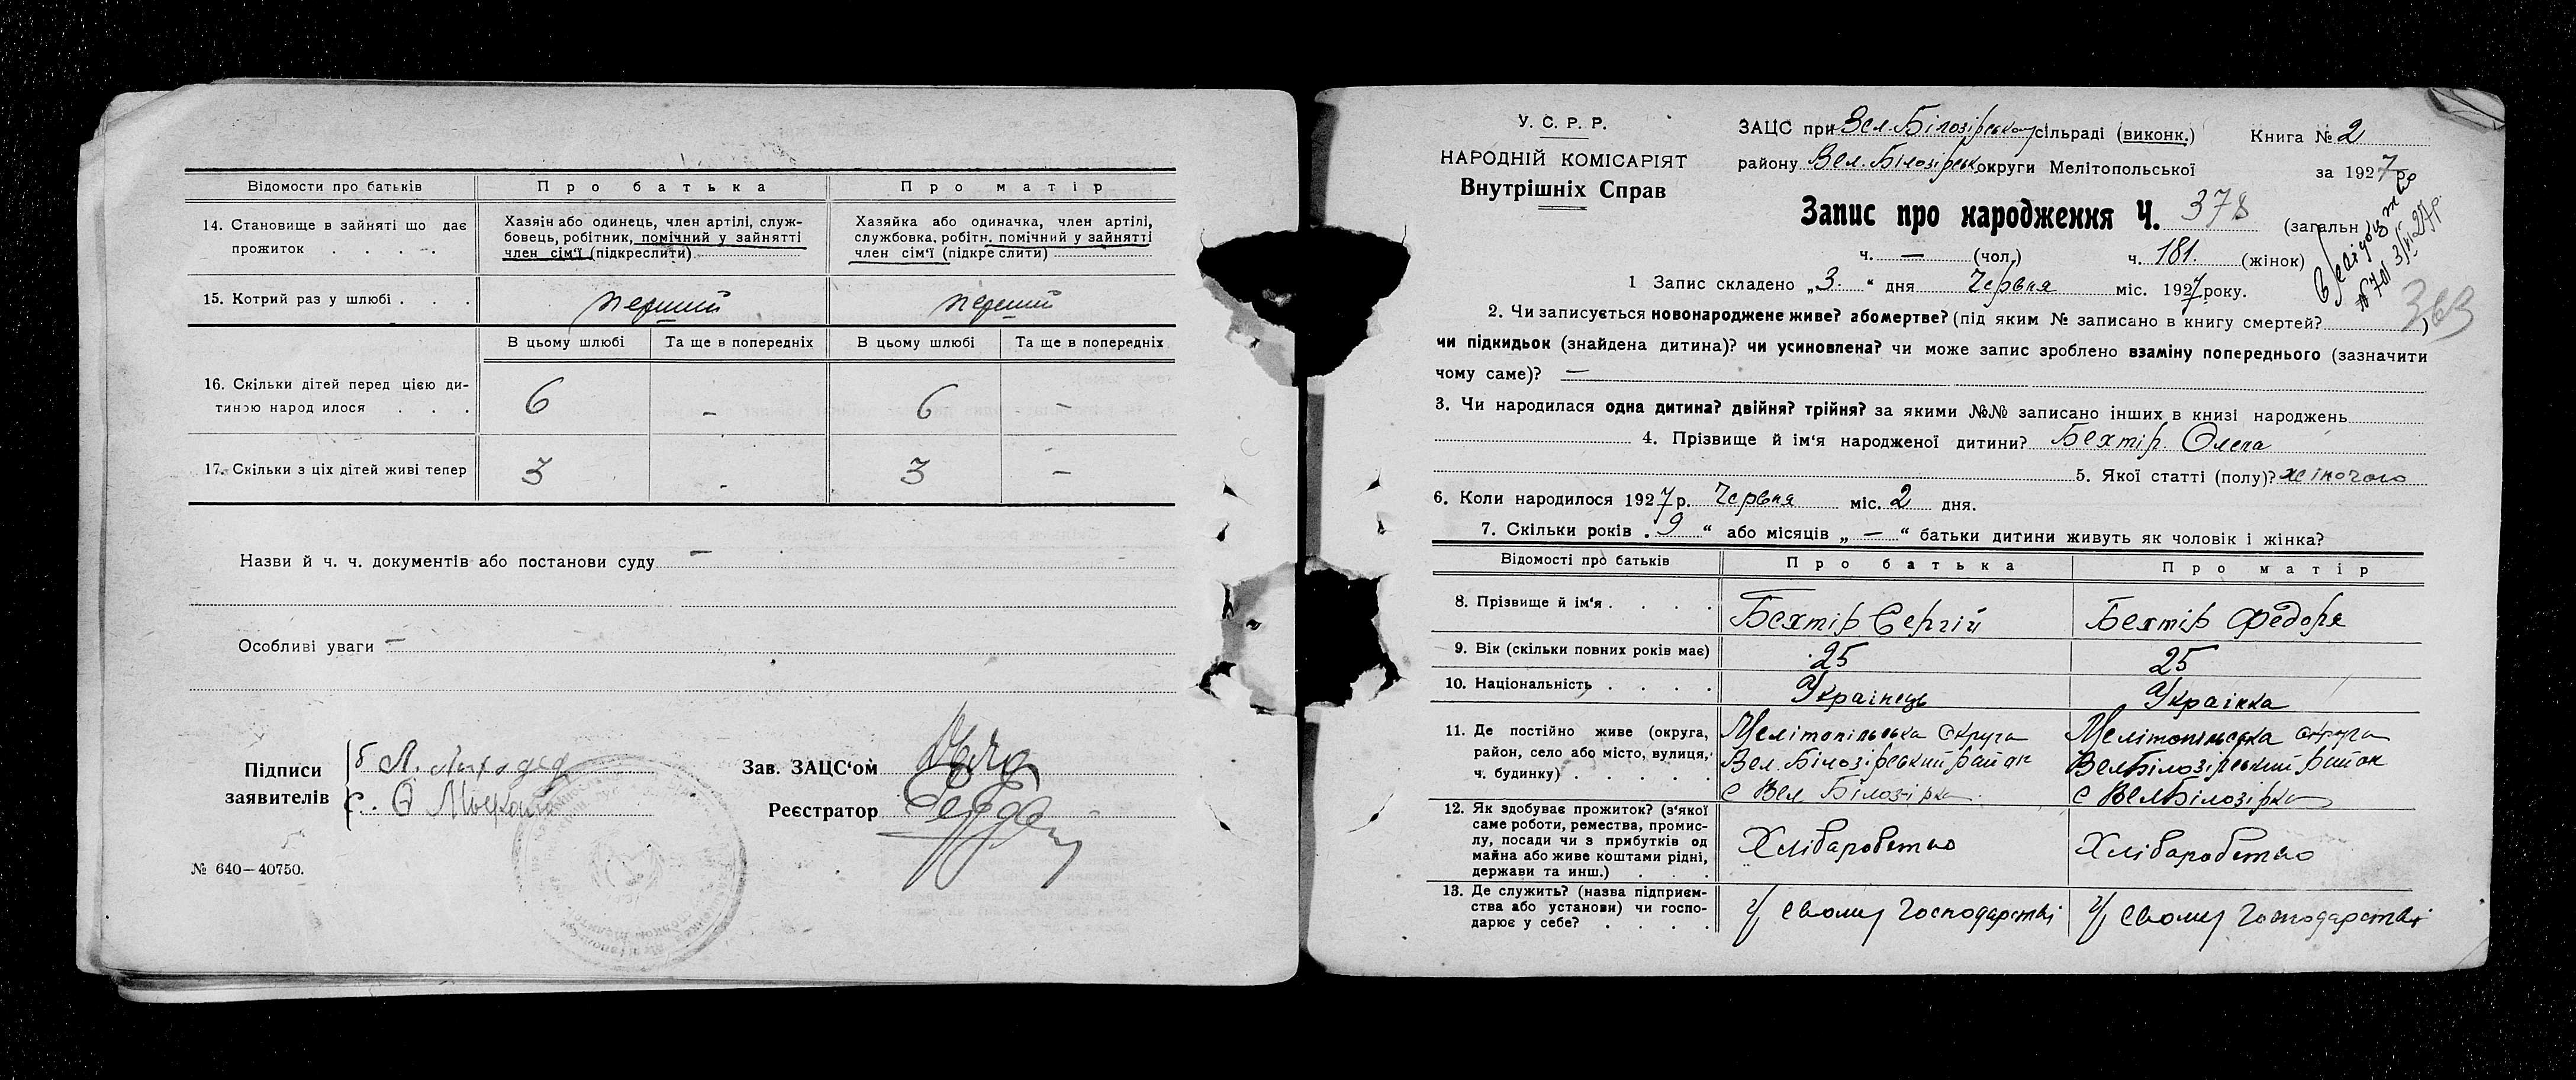 Відомости про батьків Про батька Про матір
14. Становище в зайняті що дає прожиток . . . .
Хазяін або одинець, член артілі, служ-
бовець, робітник, помічний у зайнятті
член сім'ї (підкреслити)
Хазяйка або одиначка, член артілі,
службовка, робітн. помічний у зайнятті
член сім'ї (підкреслити)
15. Котрий раз у шлюбі . . . перший перший
В цьому шлюбі Та ще в попередніх В цьому шлюбі Та ще в попередніх
16. Скільки дітей перед цією ди-
тиною народилося . . . 6 – 6 –
17. Скільки з ціх дітей живі тепер 3 - 3 –
Назви й ч. ч. документів або постанови суду –
Особливі уваги –
Підписи
заявителів
Зав. ЗАЦС'ом
Реєстратор
№ 640—40750.
У. С. Р. Р.
НАРОДНІЙ КОМІСАРІЯТ
Внутрішніх Справ
ЗАЦС при Вел. Білозірському сільраді (виконк.) Книга № 2
району Вел. Білозірськ округи Мелітопольської за 1927 р.
Запис про народження Ч. 378 (загальн
ч. — (чол.) ч. 181. (жінок)
№ 701 363
1 Запис складено „3." дня Червня міс. 1927 року.
2. Чи записується новонароджене живе? або мертве? (під яким № записано в книгу смертей? )
чи підкидьок (знайдена дитина)? чи усиновлена? чи може запис зроблено взаміну попереднього (зазначити
чому саме)? —
3. Чи народилася одна дитина? двійня? трійня? за якими №№ записано інших в книзі народжень
4. Прізвище й ім'я народженої дитини? Бехтір Олена
5. Якої статті (полу)? жіночого
6. Коли народилося 1927 р. Червня міс. 2 дня.
7. Скільки років „ 9 " або місяців „ — " батьки дитини живуть як чоловік і жінка?
Відомості про батьків Про батька Про матір
8. Прізвище й ім'я . . . . Бехтір Сергій Бехтір Федора
9. Вік (скільки повних років має) 25 25
10. Національність . . . . Українець Українка
11. Де постійно живе (округа,
район, село або місто, вулиця,
ч. будинку) . . . . .
Мелітопільська Округа
Вел. Білозірський район
с Вел Білозірка
Мелітопільська округа
Вел Білозірський район
с Вел Білозірка
12. Як здобуває прожиток? (з'якої
саме роботи, ремества, промис-
лу, посади чи з прибутків од
майна або живе коштами рідні,
держави та инш.) . . .
Хліборобство Хліборобство
13. Де служить? (назва підприєм-
ства або установи) чи госпо-
дарює у себе? . . . .
У своему господарстві У своему господарстві